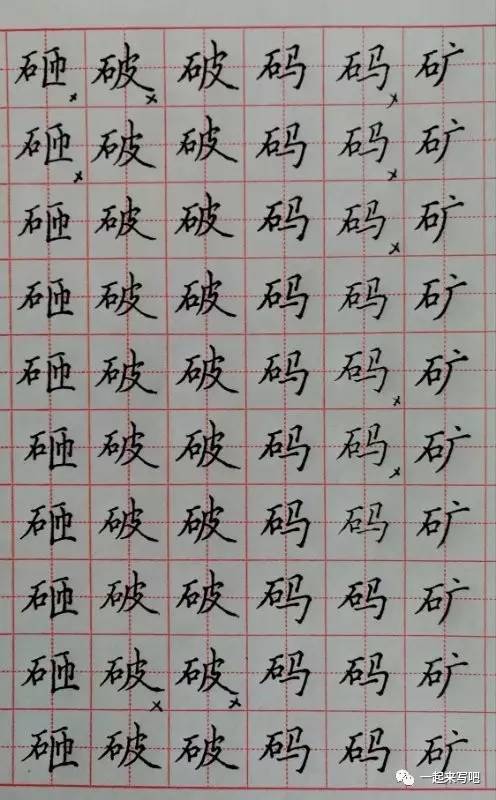 砸 破 破 码 码 矿
砸 破 破 码 码 矿
砸 破 破 码 码 矿
砸 破 破 码 码 矿
砸 破 破 码 码 矿
砸 破 破 码 码 矿
砸 破 破 码 码 矿
砸 破 破 码 码 矿
砸 破 破 码 码 矿
砸 破 破 码 码 矿
一起来写吧